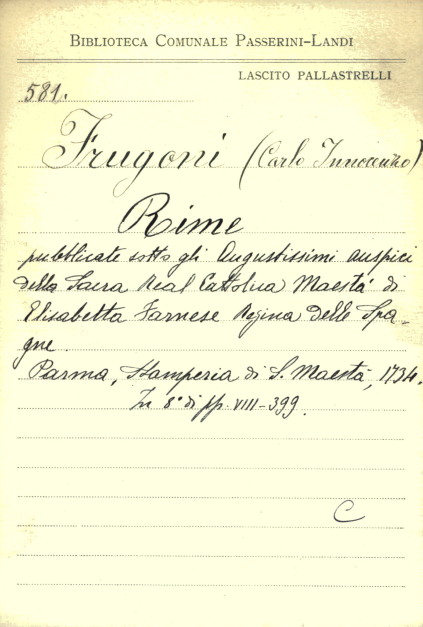 BIBLIOTECA COMUNALE PASSERINI-LANDI
LASCITO PALLASTRELLI
581.
Frugoni (Carlo Innocenzo)
Rime
pubblicate sotto gli Augustissimi auspici
della Sacra Real Cattolica Maestà di
Elisabetta Farnese Regina delle Spa-
gne.
Parma, Stamperia di S. Maestà, 1734.
In 8° di pp. VIII-399.
C